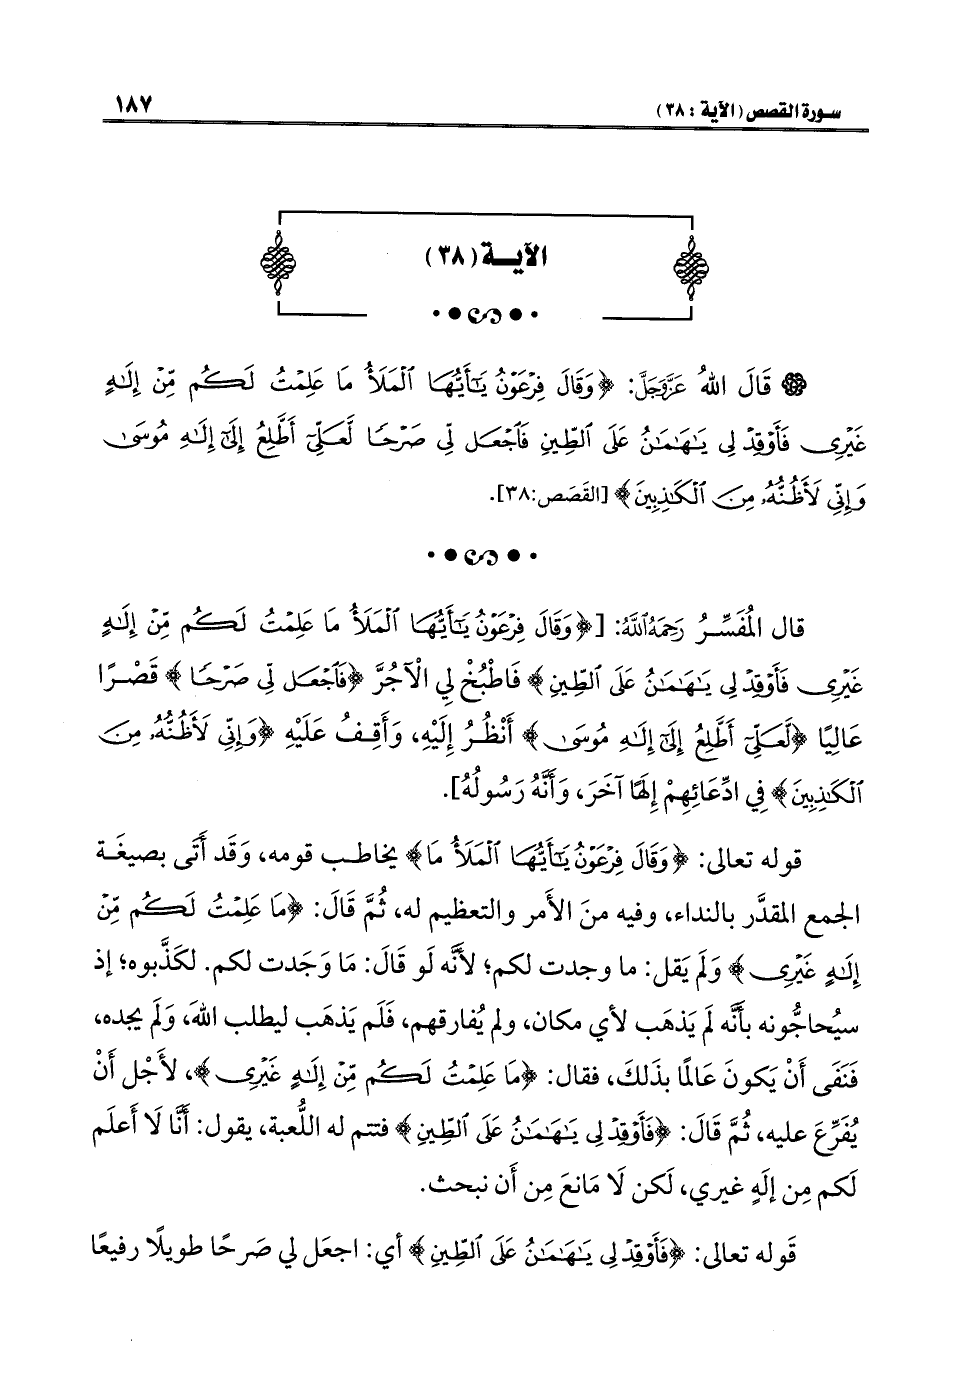 سورة القصص (الآية : ٣٨)
١٨٧
الآيـــة (٣٨)
قَالَ اللهُ عَزَّوَجَلَّ: ﴿وَقَالَ فِرْعَوْنُ يَـٰٓأَيُّهَا ٱلْمَلَأُ مَا عَلِمْتُ لَكُم مِّنْ إِلَـٰهٍ
غَيْرِى فَأَوْقِدْ لِى يَـٰهَـٰمَـٰنُ عَلَى ٱلطِّينِ فَٱجْعَل لِّى صَرْحًا لَّعَلِّىٓ أَطَّلِعُ إِلَىٰٓ إِلَـٰهِ مُوسَىٰ
وَإِنِّى لَأَظُنُّهُۥ مِنَ ٱلْكَـٰذِبِينَ﴾ [القَصَص:٣٨].
قال المُفَسِّرُ رَحِمَهُ اللَّهُ: [﴿وَقَالَ فِرْعَوْنُ يَـٰٓأَيُّهَا ٱلْمَلَأُ مَا عَلِمْتُ لَكُم مِّنْ إِلَـٰهٍ
غَيْرِى فَأَوْقِدْ لِى يَـٰهَـٰمَـٰنُ عَلَى ٱلطِّينِ﴾ فَاطْبُخْ لِي الْآجُرَّ ﴿فَٱجْعَل لِّى صَرْحًا﴾ قَصْرًا
عَالِيًا ﴿لَّعَلِّىٓ أَطَّلِعُ إِلَىٰٓ إِلَـٰهِ مُوسَىٰ﴾ أَنْظُرُ إِلَيْهِ، وَأَقِفُ عَلَيْهِ ﴿وَإِنِّى لَأَظُنُّهُۥ مِنَ
ٱلْكَـٰذِبِينَ﴾ فِي ادِّعَائِهِمْ إِلَهًا آخَرَ، وَأَنَّهُ رَسُولُهُ].
قوله تعالى: ﴿وَقَالَ فِرْعَوْنُ يَـٰٓأَيُّهَا ٱلْمَلَأُ مَا﴾ يخاطب قومه، وَقَد أَتَى بصيغَة
الجمع المقدَّر بالنداء، وفيه منَ الأَمر والتعظيم له، ثُمَّ قَالَ: ﴿مَا عَلِمْتُ لَكُم مِّنْ
إِلَـٰهٍ غَيْرِى﴾ وَلَم يَقل: ما وجدت لكم؛ لأنَّه لو قَالَ: مَا وَجَدت لكم. لكَذَّبوه؛ إذ
سيُحاجُّونه بأنَّه لَم يَذهَب لأي مكان، ولم يُفارقهم، فَلَم يَذهَب ليطلب اللهَ، وَلَم يجده،
فَنَفَى أَنْ يَكونَ عَالمًا بذَلكَ، فقال: ﴿مَا عَلِمْتُ لَكُم مِّنْ إِلَـٰهٍ غَيْرِى﴾، لأَجْل أَنْ
يُفَرِّعَ عليه، ثُمَّ قَالَ: ﴿فَأَوْقِدْ لِى يَـٰهَـٰمَـٰنُ عَلَى ٱلطِّينِ﴾ فتتم له اللُّعبة، يقول: أنَّا لَا أَعلَم
لَكم مِن إلَهٍ غيري، لَكن لَا مَانعَ مِن أَن نبحث.
قَوله تعالى: ﴿فَأَوْقِدْ لِى يَـٰهَـٰمَـٰنُ عَلَى ٱلطِّينِ﴾ أي: اجعَل لي صَرحًا طويلًا رفيعًا